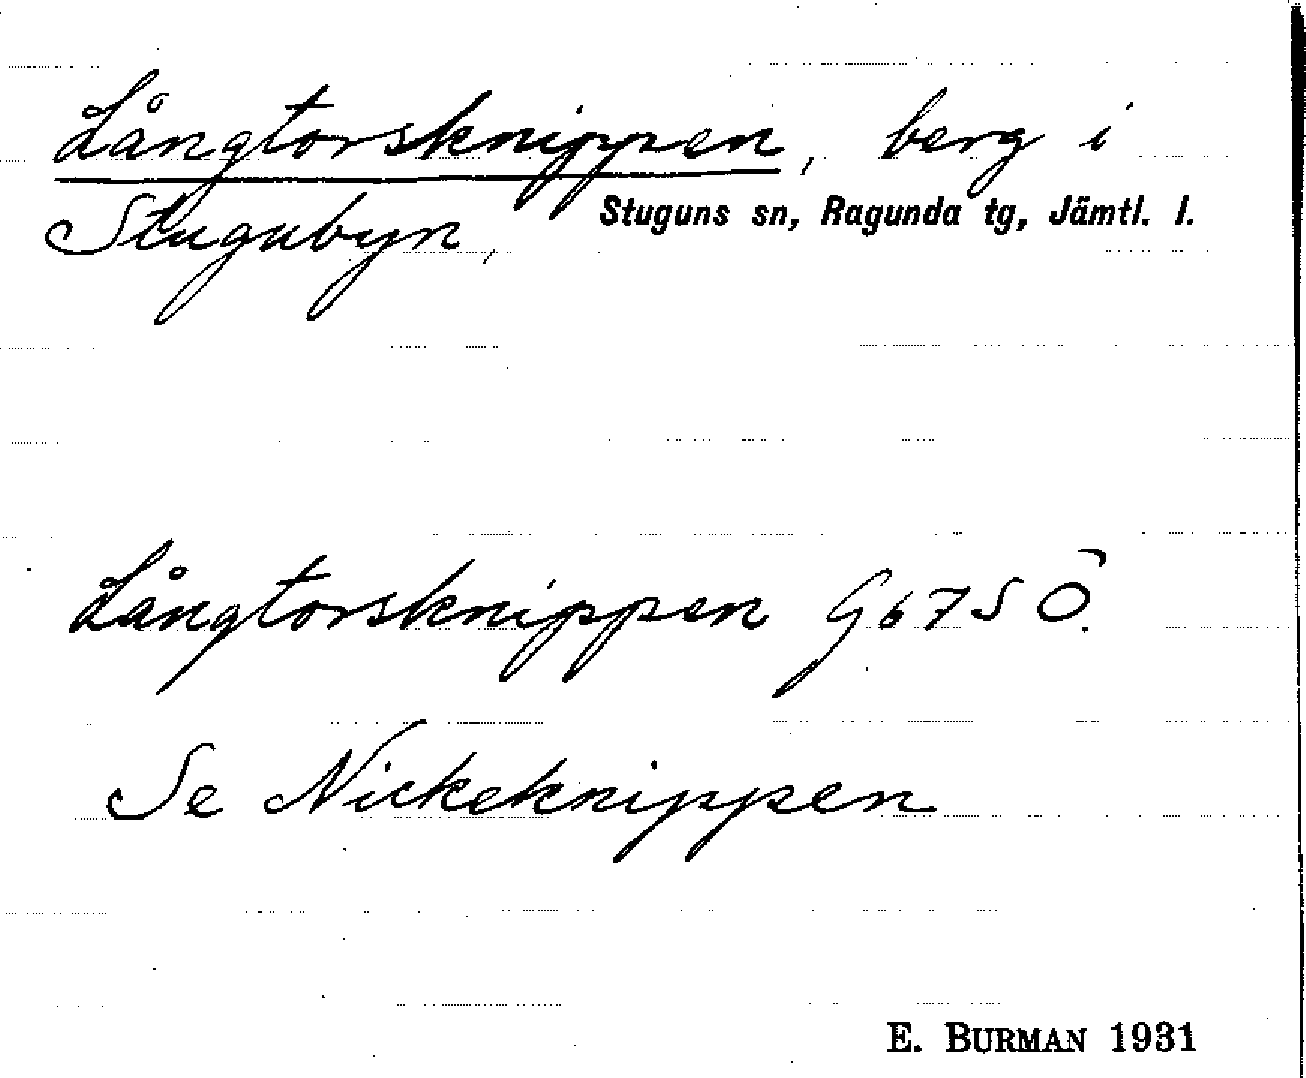 Långtorsknippen, berg i
Stugubyn, Stuguns sn, Ragunda tg, Jämtl. l.
Långtorsknippen G67SÖ.
Se Nickeknippen
E. BURMAN 1931